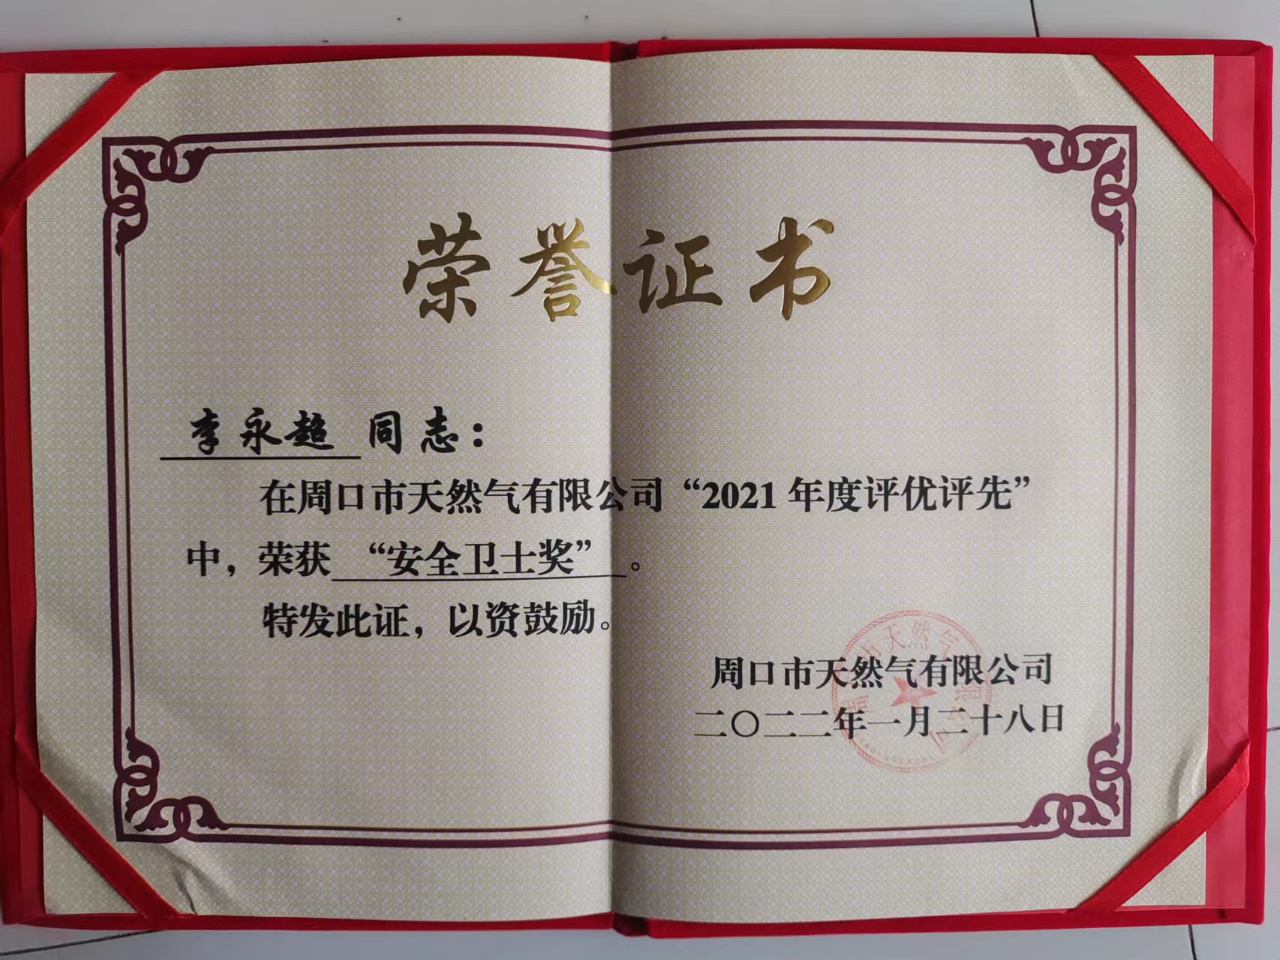 荣誉证书
李永超 同志：
在周口市天然气有限公司“2021年度评优评先”
中，荣获 “安全卫士奖” 。
特发此证，以资鼓励。
周口市天然气有限公司
二〇二二年一月二十八日